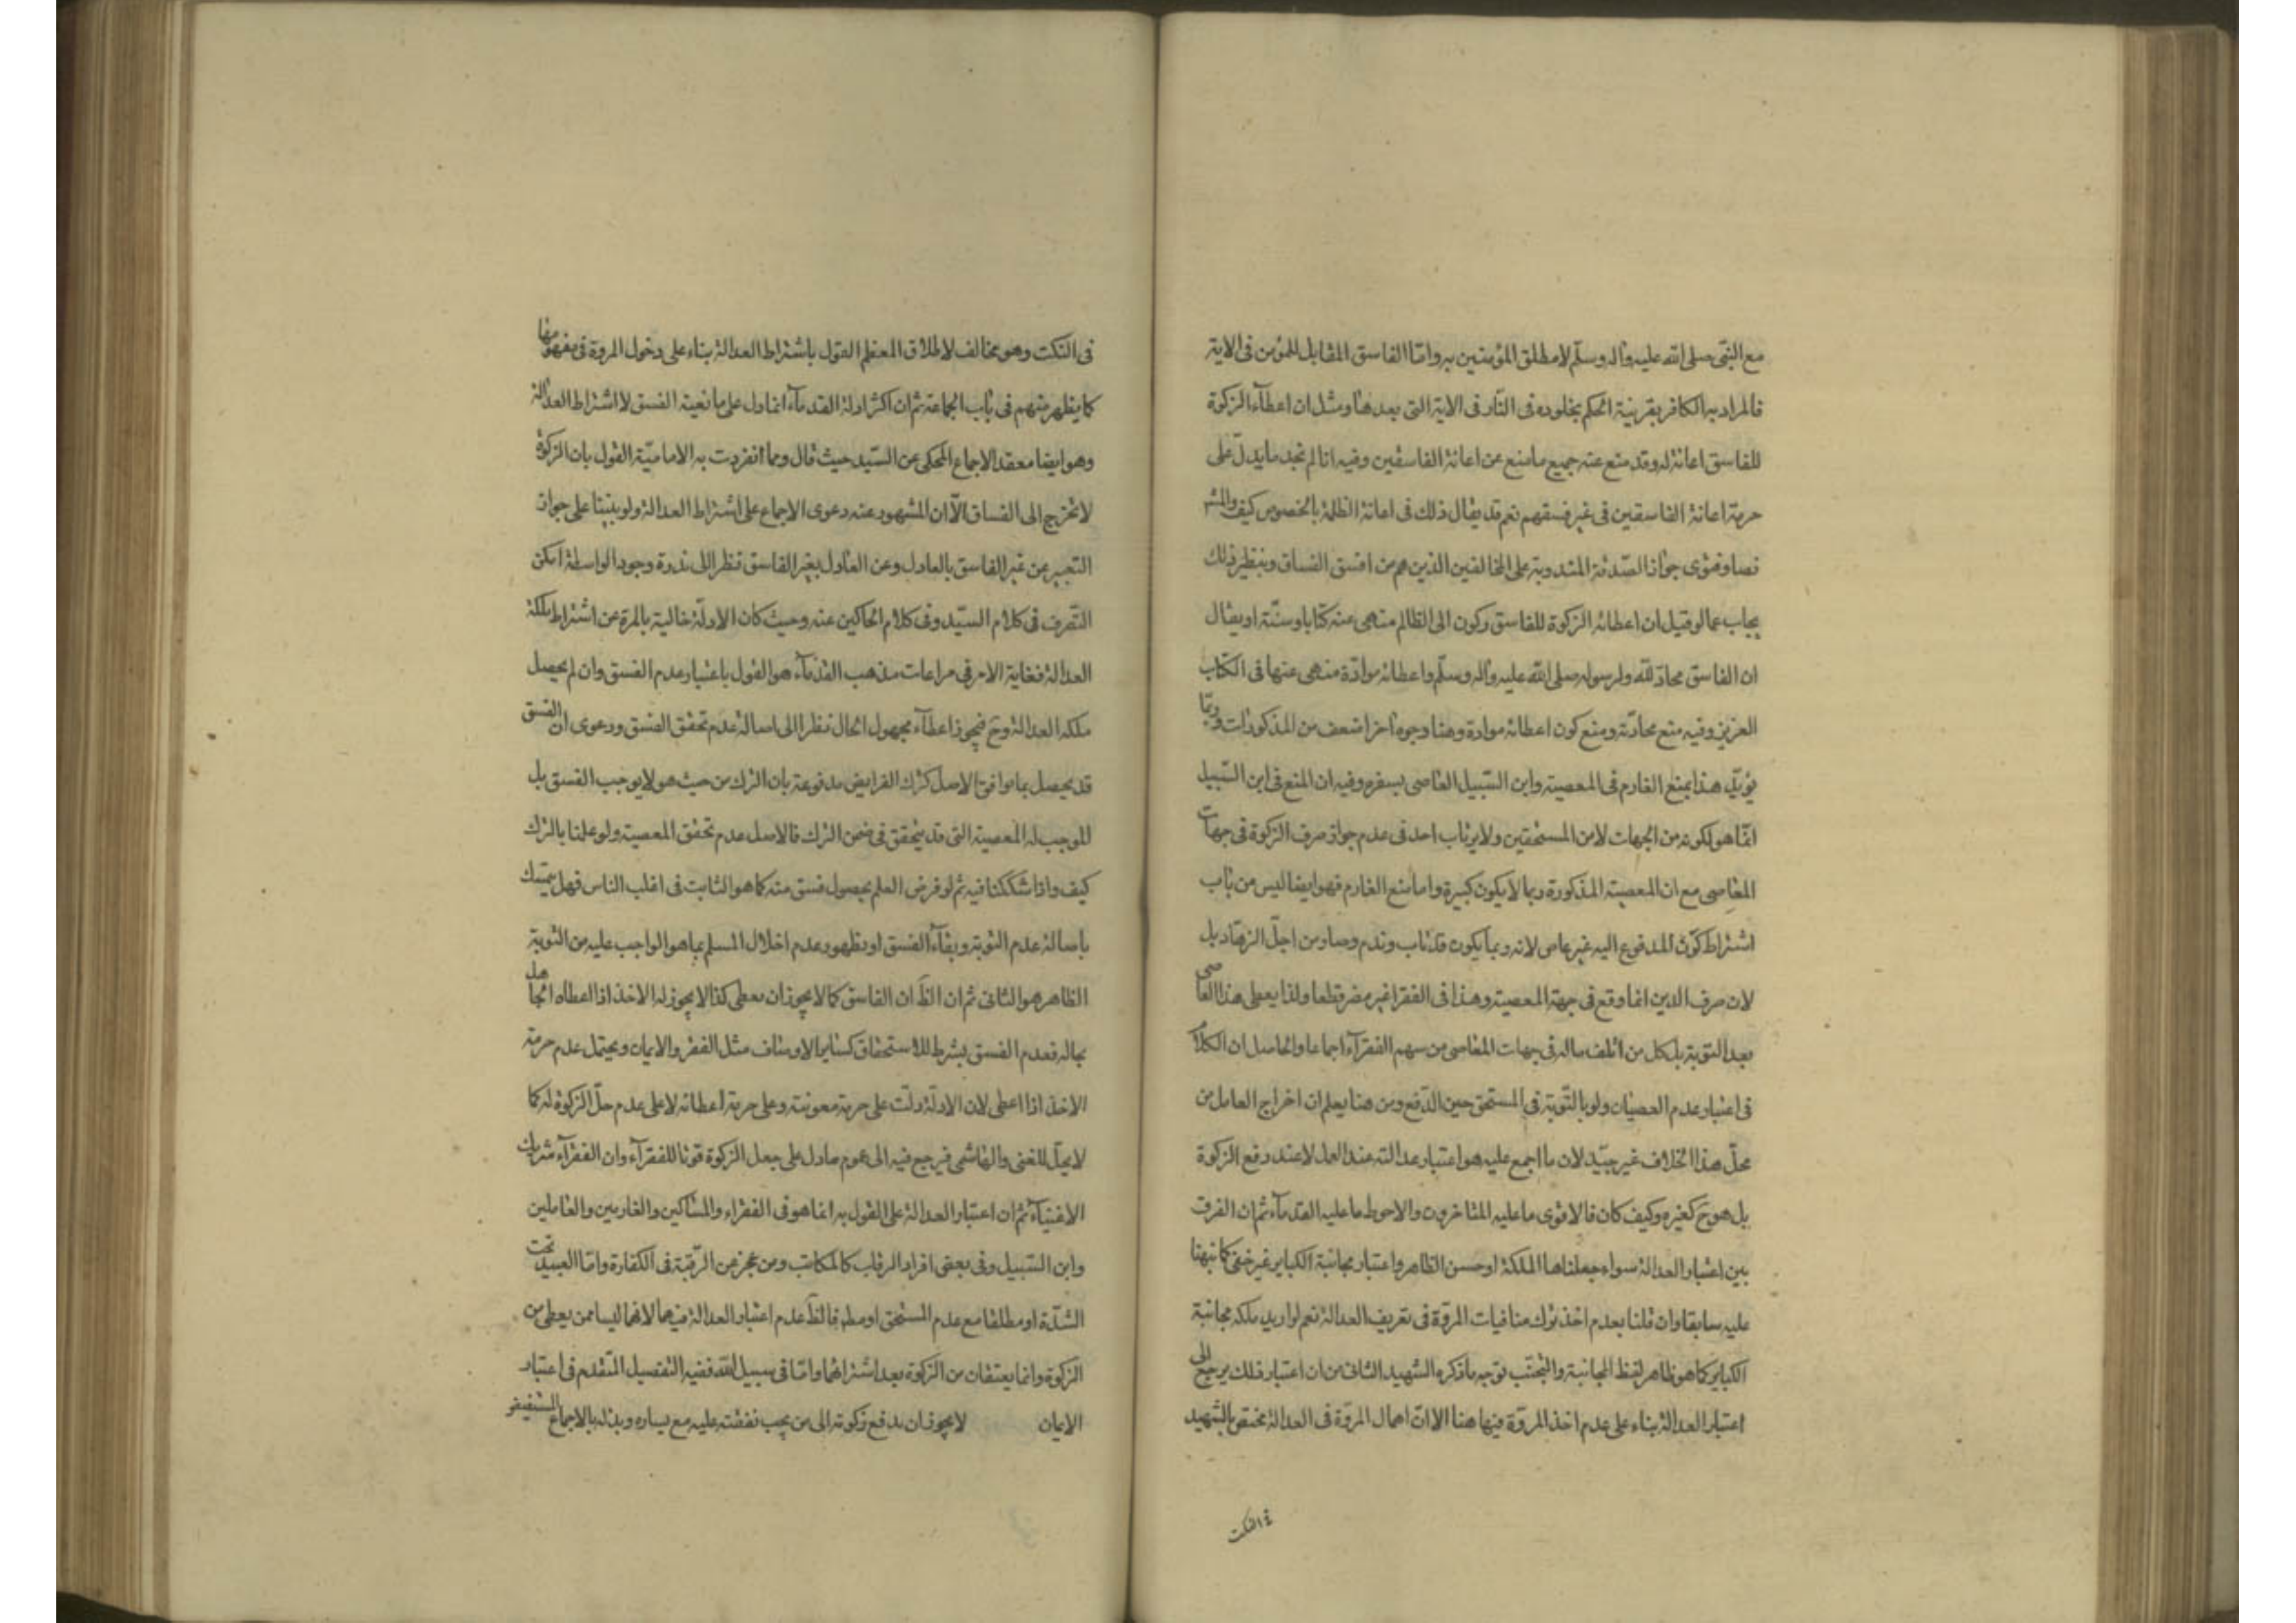 مع النبى صلى الله عليه واله وسلّم لا مطلق المؤمنين به وامّا الفاسق المقابل للمؤمن فى الاية
فالمراد به الكافر بقرينة الحكم بخلوده فى النّار فى الاية التى بعدها ومثل ان اعطآء الزكوة
للفاسق اعانة له وقد منع عنه جميع ما منع عن اعانة الفاسقين وفيه انا لم نجد ما يدلّ على
حرمة اعانة الفاسقين فى غير فسقهم نعم قد يقال ذلك فى اعانة الظلمة بالخصوص كيف والمش
نصا وفتوى جواز الصّدقة المندوبة على المخالفين الذين هم من افسق الفساق وبنظير ذلك
يجاب عما لو قيل ان اعطائه الزكوة للفاسق ركون الى الظالم منهى عنه كتابا وسنّة او يقال
ان الفاسق محادّ لله ولرسوله صلى الله عليه واله وسلّم واعطائه موادّة منهى عنها فى الكتاب
العزيز وفيه منع محادّته ومنع كون اعطائه موادة وهنا وجوه اخر اضعف من المذكورات وربّما
يؤيّد هذا بمنع الغارم فى المعصية وابن السّبيل العاصى بسفره وفيه ان المنع فى ابن السّبيل
انّما هو لكونه من الجهات لا من المستحقين ولا يرتاب احد فى عدم جواز صرف الزكوة فى جهات
المعاصى مع ان المعصية المذكورة ربما لا يكون كبيرة واما منع الغارم فهو ايضا ليس من باب
اشتراط كون المدفوع اليه غير عاص لانه ربما يكون قد تاب وندم وصار من اجلّ الزهّاد بل
لان صرف الدين انما وقع فى جهة المعصية وهذا فى الفقرا غير مضر قطعا ولذا يعطى هذا العاصى
بعد التوبة بل كل من اتلف ماله فى جهات المعاصى من سهم الفقرآء اجماعا والحاصل ان الكلام
فى اعتبار عدم العصيان ولو بالتّوبة فى المستحق حين الدّفع ومن هنا يعلم ان اخراج العامل من
محلّ هذا الخلاف غير جيّد لان ما اجمع عليه هو اعتبار عدالته عند العمل لا عند دفع الزكوة
بل هو ح كغيره وكيف كان فالاقوى ما عليه المتاخرون والاحوط ما عليه القدمآء ثم ان الفرق
بين اعتبار العدالة سواء جعلناها الملكة او حسن الظاهر واعتبار مجانبة الكباير غير خفى كما نبهنا
عليه سابقا وان قلنا بعدم اخذ ترك منافيات المروّة فى تعريف العدالة نعم لو اريد ملكه مجانبة
الكباير كما هو ظاهر لفظ المجانبة والتجنّب توجه ما ذكره الشهيد الثانى من ان اعتبار ذلك يرجع الى
اعتبار العدالة بناء على عدم اخذ المروّة فيها هنا الا ان اهمال المروّة فى العدالة مختص بالشهيد
فى النكت
فى النكت وهو مخالف لاطلاق المعظم القول باشتراط العدالة بناء على دخول المروة فى مفهومها
كما يظهر منهم فى باب الجماعة ثم ان اكثر ادلة القدمآء انما دل على مانعية الفسق لا اشتراط العدالة
وهو ايضا معقد الاجماع المحكى عن السّيد حيث قال ومما انفردت به الاماميّة القول بان الزكوة
لا تخرج الى الفساق الّا ان المشهود عنه دعوى الاجماع على اشتراط العدالة ولو بنينا على جواز
التعبير عن غير الفاسق بالعادل وعن العادل بغير الفاسق نظرا الى ندرة وجود الواسطة امكن
التّصرف فى كلام السيّد وفى كلام الحاكين عنه وحيث كان الادلّة خالية بالمرة عن اشتراط ملكة
العدالة فغاية الامر فى مراعات مذهب القدمآء هو القول باعتبار عدم الفسق وان لم يحصل
ملكه العدالة وح فيجوز اعطآء مجهول الحال نظرا الى اصالة عدم تحقق الفسق ودعوى ان الفسق
قد يحصل بما يوافق الاصل كترك الفرايض مدفوعة بان الترك من حيث هو لا يوجب الفسق بل
الموجب له المعصية التى قد يتحقق فى ضمن الترك فالاصل عدم تحقق المعصية ولو علمنا بالترك
كيف واذا شككنا فيه ثم لو فرض العلم بحصول فسق منه كما هو الثابت فى اغلب الناس فهل يتمسك
باصالة عدم التوبة وبقآء الفسق او بظهور عدم اخلال المسلم بما هو الواجب عليه من التوبة
الظاهر هو الثانى ثم ان الظّ ان الفاسق كما لا يجوز ان يعطى كذا لا يجوز له الاخذ اذا اعطاه الجاهل
بحاله فعدم الفسق يشرط للاستحقاق كساير الاوصاف مثل الفقر والايمان ويحتمل عدم حرمة
الاخذ اذا اعطى لان الادلّة دلّت على حرمة معونته وعلى حرمة اعطائه لا على عدم حلّ الزكوة له كما
لا يحلّ للغنى والهاشمى فيرجع فيه الى عموم ما دل على جعل الزكوة قوتا للفقرآء وان الفقرآء شريك
الاغنيآء ثم ان اعتبار العدالة على القول به انما هو فى الفقراء والمساكين والغارمين والعاملين
وابن السّبيل وفى بعض افراد الرقاب كالمكاتب ومن عجز عن الرّقبة فى الكفارة وامّا العبيد تحت
الشدّة او مطلقا مع عدم المستحق او مطلقا فالظّ عدم اعتبار العدالة فيهما لانهما ليسا ممن يعطى من
الزكوة وانما يعتقان من الزكوة بعد اشترائهما وامّا فى سبيل الله ففيه التفصيل المتقدم فى اعتبار
الايمان لا يجوز ان يدفع زكوته الى من يجب نفقته عليه مع يساره وبذله بالاجماع المستفيض